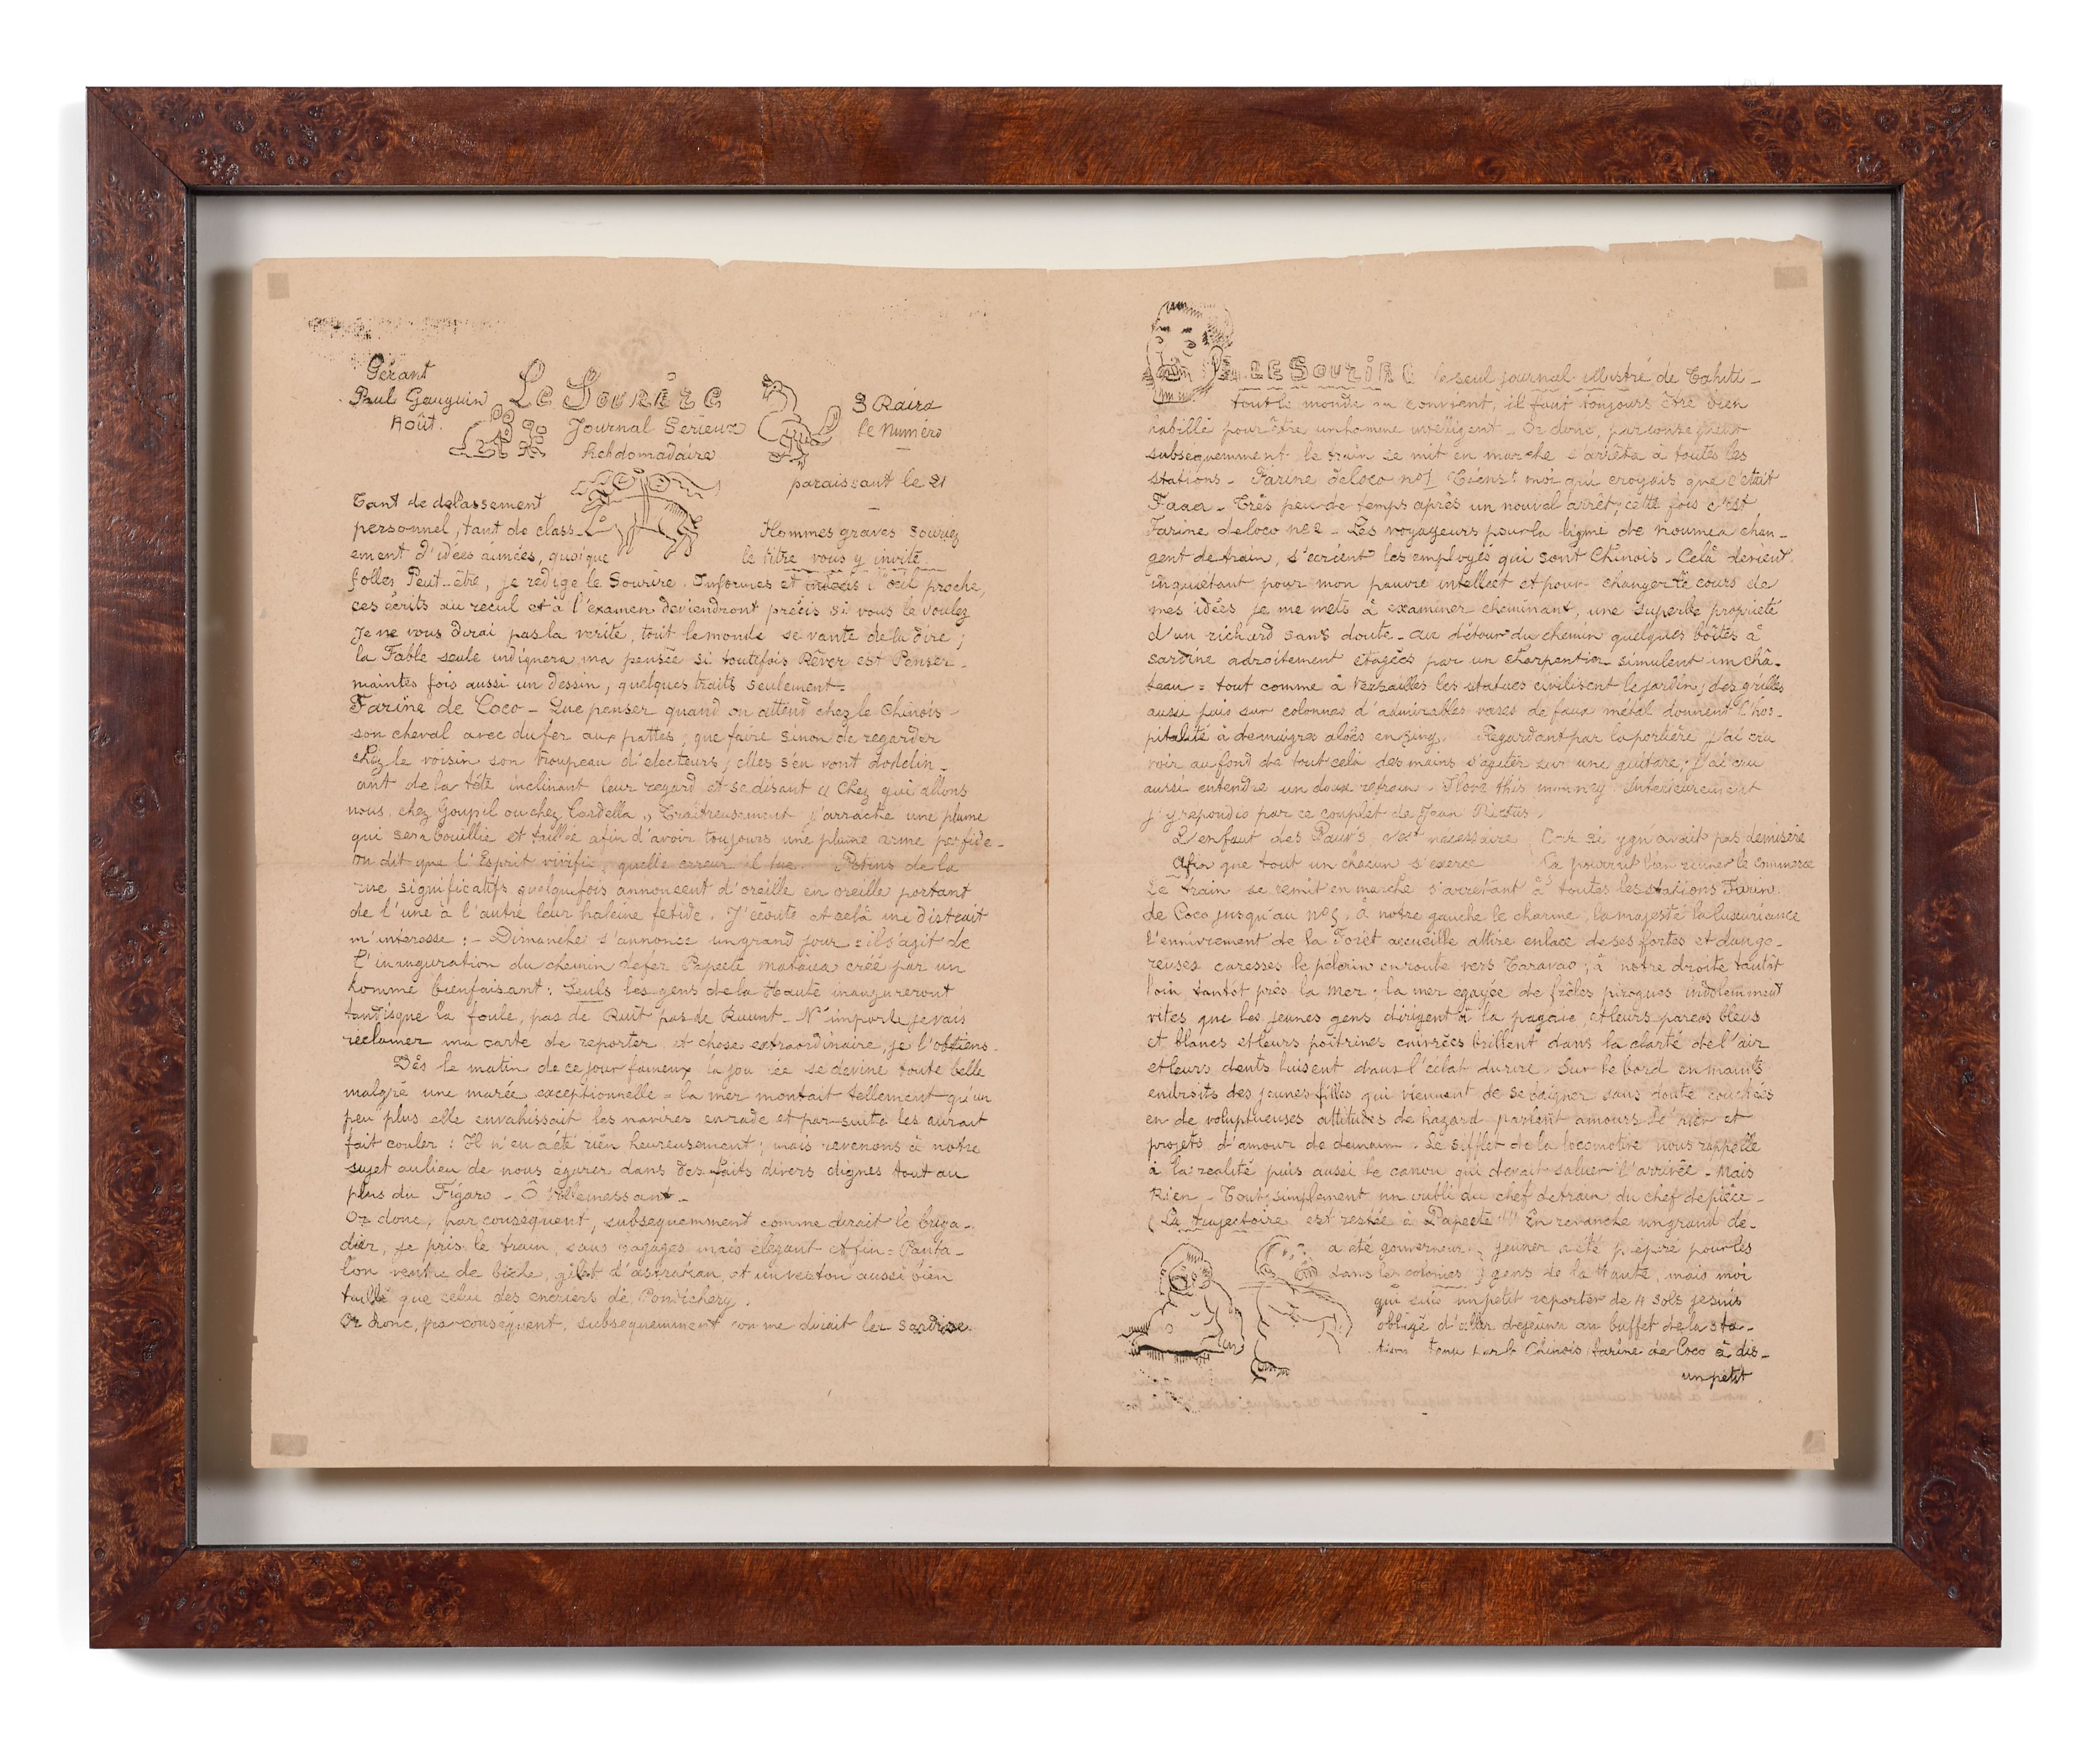 Gérant
Paul Gauguin
Août.
Le Sourire
Journal Sérieux
hebdomadaire
3 Raira
le Numéro
paraissant le 21
Hommes graves souriez
le titre vous y invite
Tant de delassement
personnel, tant de class-
ement d'idées aimées, quoique
folles Peut-être, je redige le Sourire. Informes et indécis l'œil proche,
ces écrits au recul et à l'examen deviendront précis si vous le voulez
Je ne vous dirai pas la verité, tout le monde se vante de la dire;
la Fable seule indignera ma pensée si toutefois Rêver est Penser-
maintes fois aussi un dessin, quelques traits seulement-
Farine de Coco - Que penser quand on attend chez le Chinois
son cheval avec du fer aux pattes, que faire sinon de regarder
chez le voisin son troupeau d'electeurs; elles s'en vont dodelin-
ant de la tête inclinant leur regard et se disant "Chez qui allons
nous, chez Goupil ou chez Cardella" Traitreusement j'arrache une plume
qui sera bouillie et taillée afin d'avoir toujours une plume arme perfide-
On dit que l'Esprit vivifie, quelle erreur il tue. Potins de la
rue significatifs quelquefois annoncent d'oreille en oreille portant
de l'une à l'autre leur haleine fetide. J'écoute et celà me distrait
m'interesse: - Dimanche s'annonce un grand jour: il s'agit de
l'inauguration du chemin de fer Papeete mataiea créé par un
homme bienfaisant: Seuls les gens de la Haute inaugureront
tandisque la foule, pas de Ruit pas de Ruunt - N'importe je vais
réclamer ma carte de reporter et chose extraordinaire, je l'obtiens-
Dès le matin de ce jour fameux la jou ée se devine toute belle
malgré une marée exceptionnelle = la mer montait tellement qu'un
peu plus elle envahissait les navires en rade et par-suite les aurait
fait couler: Il n'en a été rien heureusement; mais revenons à notre
sujet au lieu de nous égarer dans des faits divers dignes tout au
plus du Figaro - Ô Villemessant -
Or donc, par conséquent, subsequemment comme dirait le briga-
dier, je pris le train, sans bagages mais élégant et fin = Panta-
lon ventre de biche, gilet d'astrakan, et un veston aussi bien
taillé que celui des encriers de Pondichery.
Or donc, par conséquent, subsequemment comme dirait les sardise
LE SOURIRE le seul journal illustré de Tahiti-
tout le monde en convient, il faut toujours être bien
habillé pour être un homme intelligent - Or donc, par conséquent
subsequemment le train se mit en marche s'arrête à toutes les
stations - Farine de coco no1 Tiens! moi qui croyais que c'était
Faaa - Très peu de temps après un nouvel arrêt; cette fois c'est
Farine de coco no 2 - Les voyageurs pour la ligne de Noumea chan-
gent de train, s'écrient les employés qui sont Chinois - Celà devient
inquiétant pour mon pauvre intellect et pour changer le cours de
mes idées je me mets à examiner cheminant, une superbe proprieté
d'un richard sans doute - au détour du chemin quelques boîtes à
sardine adroitement étagées par un charpentier simulent un châ-
teau = tout comme à Versailles les statues civilisent le jardin; des grilles
aussi puis sur colonnes d'admirables vases de faux métal donnent l'hos-
pitalité à de maigres aloès en zing. Regardant par la portière j'ai cru
voir au fond de tout celà des mains s'agiter sur une guitare; j'ai cru
aussi entendre un doux refrain - I love this monney Interieurement
j'y repondis par ce couplet de Jean Rictus.
L'enfant des Pauv's c'est nécessaire Car si y gn'avait pas de misère
Afin que tout un chacun s'exerce Ca pourrait ben ruiner le commerce
Le train se remit en marche s'arretant à toutes les stations Farine
de Coco jusqu'au no5. à notre gauche le charme, la majesté la luxuriance
l'ennivrement de la Forêt accueille attire enlace de ses fortes et dange-
reuses caresses le pèlerin en route vers Taravao; à notre droite tantôt
loin tantôt près la mer; la mer egayée de frêles pirogues indolemment
vites que les jeunes gens dirigent à la pagaie, et leurs pareos bleus
et blancs et leurs poitrines cuivrées brillent dans la clarté de l'air
et leurs dents luisent dans l'éclat du rire. Sur le bord en maints
endroits des jeunes filles qui viennent de se baigner sans doute couchées
en de voluptueuses attitudes de hazard parlent amours d'hier et
projets d'amour de demain. Le sifflet de la locomotive nous rappelle
à la realité puis aussi le canon qui devait saluer l'arrivée - Mais
Rien - Tout simplement un oubli du chef de train du chef de pièce-
(La trajectoire est restée à Papeete!!!) En revanche un grand dé-
a été gouverneur jeuner a été préparé pour les
dans les colonies ) gens de la Haute, mais moi
qui suis un petit reporter de 4 sols je suis
obligé d'aller dejeuner au buffet de la sta-
tion tenu par le Chinois farine de Coco à dis-
un petit